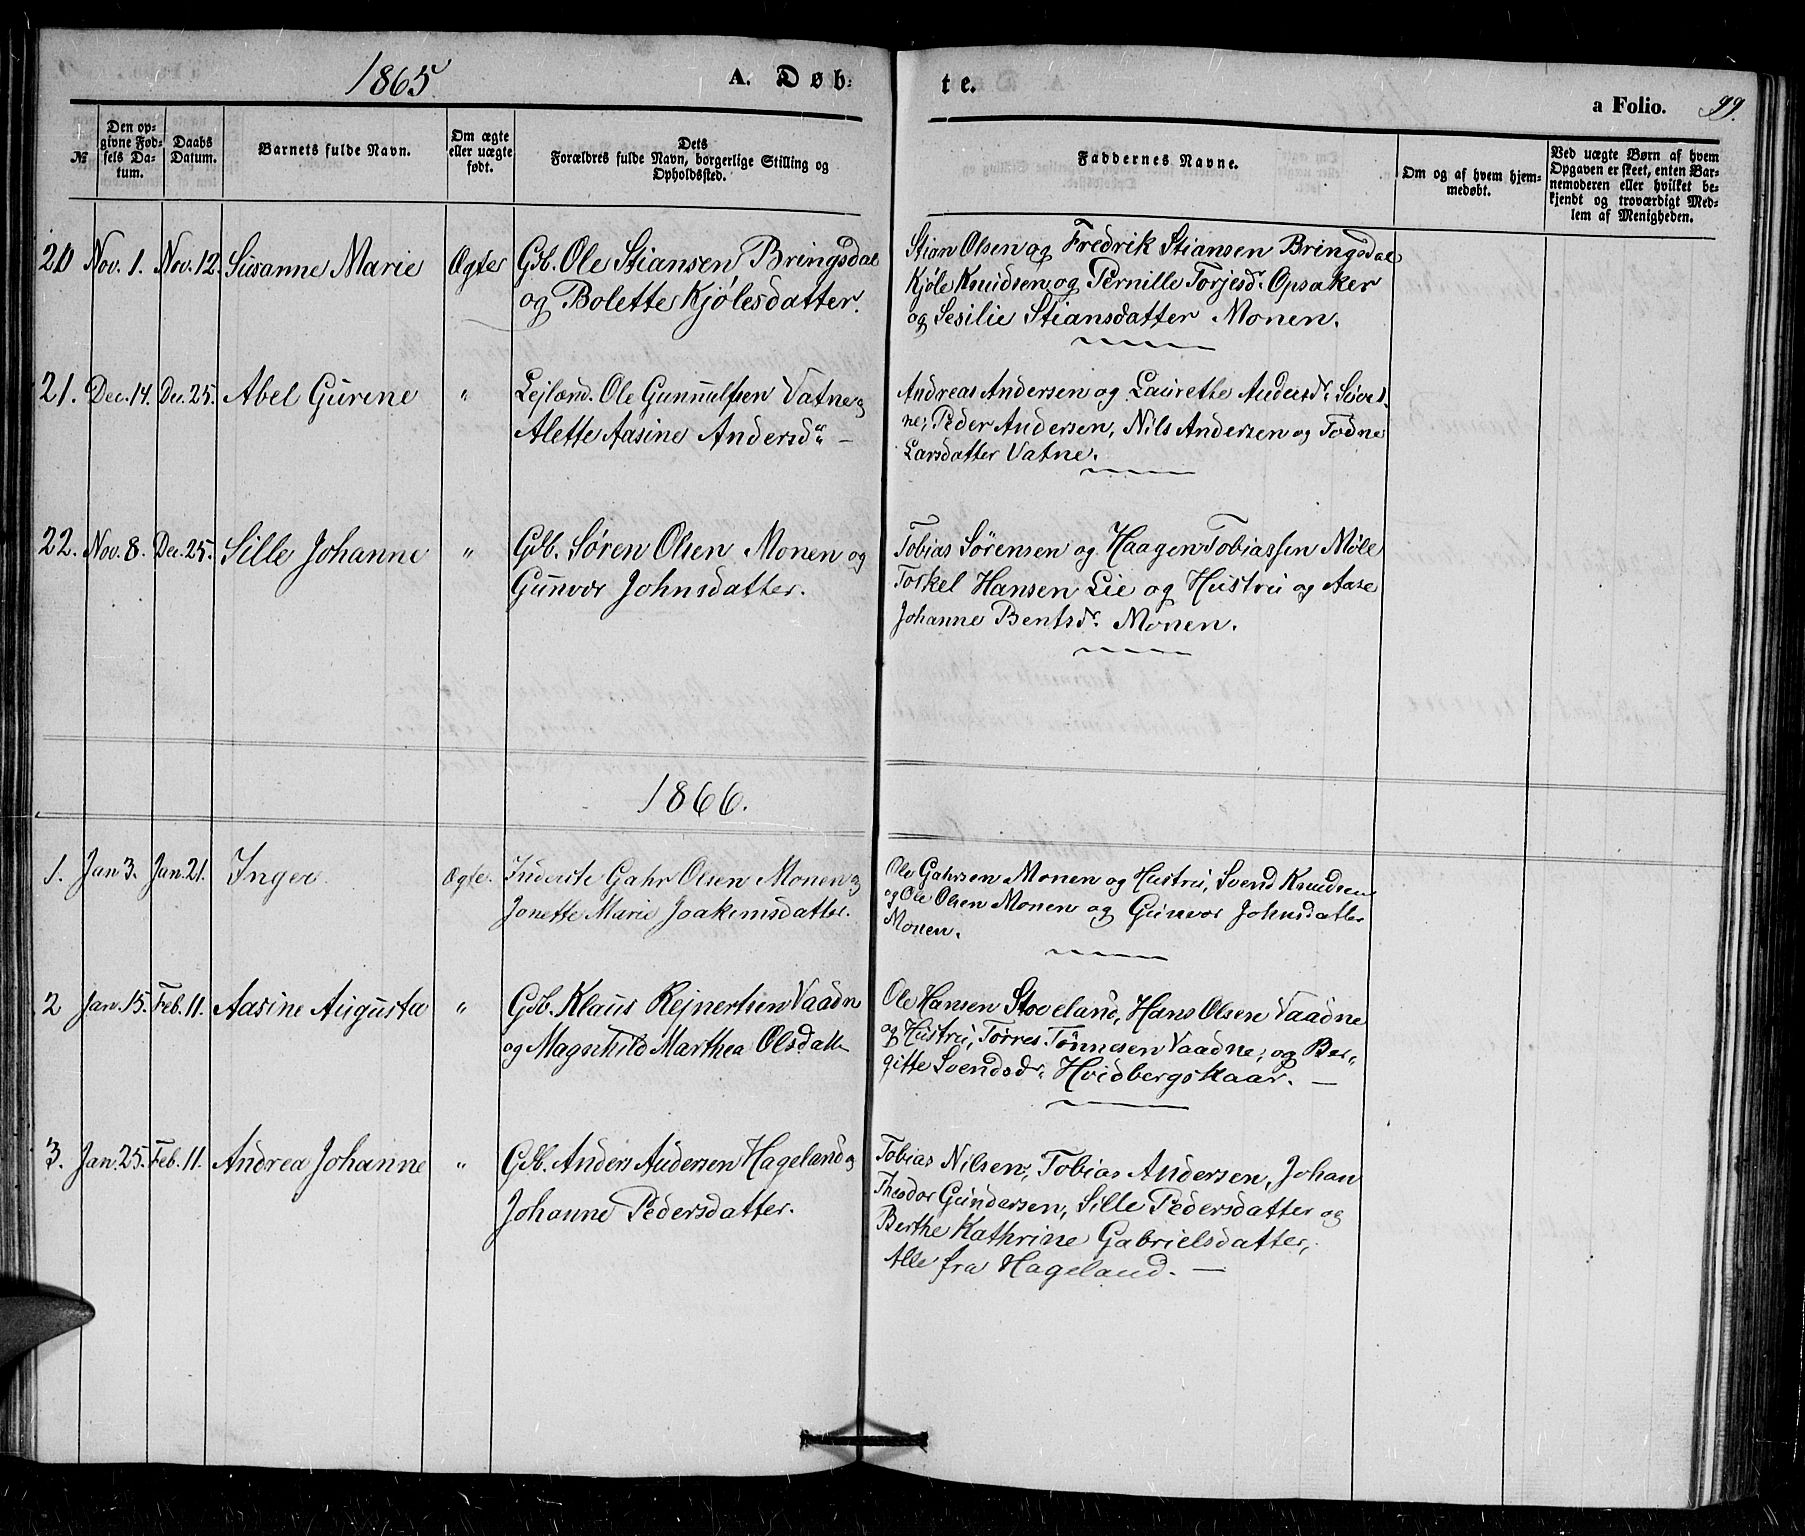 1865
A. Døb-
te.
a Folio. 99.
№
Den op-
givne Fød-
sels Da-
tum.
Daabs
Datum.
Barnets fulde Navn.
Om ægte
eller uægte
født.
Dets
Forældres fulde Navn, borgerlige Stilling og
Opholdssted.
Faddernes Navne.
Om og af hvem hjem-
medøbt.
Ved uægte Børn af hvem
Opgaven er skeet, enten Bar-
nemoderen eller hvilket be-
kjendt og troværdigt Med-
lem af Menigheden.
20 Nov. 1. Nov. 12. Susanne Marie Ægte Gdb. Ole Stiansen Bringsdal
og Bolette Kjølesdatter.
Stian Olsen og Fredrik Stiansen Bringsdal
Kjøle Knudsen og Pernille Torjesdr. Opsaker
og Sesilie Stiansdatter Monen.
21. Dec. 14. Dec. 25. Abel Gurine " Lejlænd. Ole Gunnulfsen Vatne og
Alette Aasine Andersdr —
Andreas Andersen og Laurethe Andersdr.
ne, Peder Andersen, Nils Andersen og Todne
Larsdatter Vatne.
22. Nov. 8. Dec. 25. Sille Johanne " Gdb. Søren Olsen Monen og
Gunvor Johnsdatter.
Tobias Sørensen og Haagen Tobiassen Møle
Torkel Hansen Lie og Hustru og Aase
Johanne Bentsdr. Monen.
1866.
1. Jan 3. Jan. 21. Inger Ægte. Inderste Gahr Olsen Monen og
Jonette Marie Joakimsdatter.
Ole Gahrsen Monen og Hustru, Svend Knudsen
og Ole Olsen Monen og Gunvor Johnsdatter
Monen.
2 Jan. 15. Feb. 11. Aasine Augusta " Gdb. Klaus Rejnertsen Vaadn
og Magnhild Marthea Olsdatt
Ole Hansen Stoveland, Hans Olsen Vaadne
og Hustru, Tørres Tønnesen Vaadne, og Ber-
gitte Svendsdr. Hvidbergskaar. —
3. Jan. 25. Feb. 11. Andrea Johanne " Gdb. Anders Andersen Hageland og
Johanne Pedersdatter.
Tobias Nilsen, Tobias Andersen, Johan
Theodor Gundersen, Sille Pedersdatter og
Berthe Kathrine Gabrielsdatter,
Alle fra Hageland. —